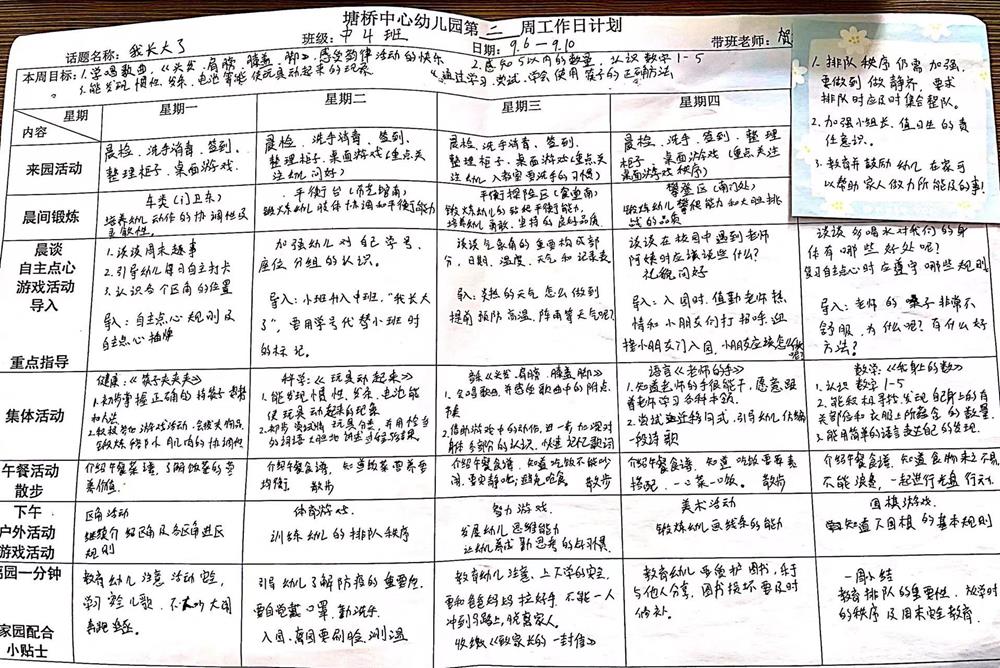 塘桥中心幼儿园第二周工作日计划
话题名称：我长大了 班级：中4班 日期：9.6—9.10 带班老师：
本周目标：1.学唱歌曲，《头发、肩膀、膝盖、脚》感受韵律活动的快乐 2.感知5以内的数量，认识数字1-5
3.能发现惯性、发条、电池等能使玩具动起来的现象 4.通过学习、尝试，学会使用筷子的正确方法
1.排队秩序仍需加强，
要做到做静齐，要求
排队时应及时集合整队。
2.加强小组长、值日生的责
任意识。
3.教育并鼓励幼儿在家可
以帮助家人做力所能及的事！
星期 星期一 星期二 星期三 星期四
内容
来园活动
晨检、洗手消毒、签到、
整理柜子、桌面游戏。
晨检、洗手消毒、签到、
整理柜子、桌面游戏（重点关
注幼儿问好）
晨检、洗手消毒、签到、
整理柜子、桌面游戏（重点关
注幼儿入教室要洗手的习惯）
晨检、洗手、签到、整理
柜子、桌面游戏（重点关注
桌面游戏秩序）
晨间锻炼
车类（门卫东）
培养幼儿动作的协调性及
柔软性。
平衡台
锻炼幼儿肢体协调和平衡能力
平衡探险区（食堂南）
锻炼幼儿的平衡能力，
培养幼儿勇敢、坚持的良好品质
攀登区（南门处）
锻炼幼儿攀爬能力和大胆挑
战的品质
晨谈
自主点心
游戏活动
导入
重点指导
1.谈谈周末趣事
2.引导幼儿每日自主打卡
3.认识各个区角的位置
导入：自主点心规则及
自主点心插牌
加强幼儿对自己学号、
座位、分组的认识。
导入：小班升入中班，“我长大
了”，要用学号代替小班时
的标记。
谈谈气象角的重要构成部
分，日期、温度、天气和记录表
导入：炎热的天气怎么做到
提前预防高温、阵雨等天气呢？
谈谈在校园中遇到老师
阿姨时应该说些什么？
礼貌问好
导入：入园时，值勤老师热
情和小朋友们打招呼，迎
接小朋友门入园，小朋友应该怎么做呢？
谈谈多喝水对我们的身
体有哪些好处呢？
复习自主点心时应遵守哪些规则
导入：老师的嗓子非常不
舒服，为什么呢？有什么好
方法？
集体活动
健康：《筷子夹夹夹》
1.初步掌握正确的持筷子姿势
和方法
科学：《玩具动起来》
1.能发现惯性、发条、电池能
使玩具动起来的现象
音乐《头发、肩膀、膝盖、脚》
1.会唱歌曲，并感受歌曲中的附点
节奏
语言《老师的手》
1.知道老师的手很能干，愿意跟
着老师学习各种本领
2.尝试，引导幼儿仿编
一段诗歌
数学：《我身上的数》
1.认识数字1-5
2.能积极寻找、发现自己身上的有
关部位和衣服上所蕴含的数量
3.能用简单的语言表达自己的发现
午餐活动
散步
介绍午餐菜谱，了解蔬菜的营
养价值
介绍午餐食谱，知道饭菜要荤素
均衡 散步
介绍午餐食谱，知道吃饭不能吵
闹，要安静吃，避免呛食 散步
介绍午餐食谱，知道吃饭要荤素
搭配，一口菜一口饭。 散步
介绍午餐食谱，知道食物来之不易，
不能浪费，一起进行光盘行动
下午
户外活动
游戏活动
区角活动
继续介绍区角及各区角进区
规则
体育游戏
训练幼儿的排队秩序
智力游戏
发展幼儿思维能力
让幼儿养成勤思考的好习惯
美术活动
锻炼幼儿画线条的能力
围棋游戏
知道下围棋的基本规则
离园一分钟
家园配合
小贴士
教育幼儿注意活动安全，
学习安全儿歌，不大吵大闹
引导幼儿了解防疫的重要性，
要自觉戴口罩，勤洗手
入园、离园要刷脸、测温
教育幼儿注意，上下学的安全，
要和爸爸妈妈拉好手，不能一人
冲到马路上，听大家人。
收缴《致家长的一封信》
教育幼儿要爱护图书，乐于
与他人分享，图书损坏要及时
修补。
一周小结
教育排队的重要性，放学时
的秩序及周末安全教育